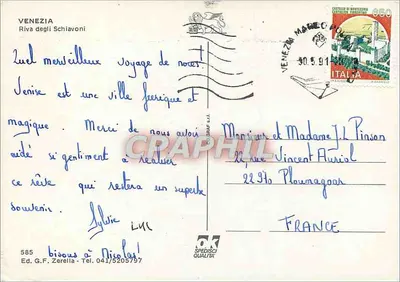 VENEZIA
Riva degli Schiavoni
Quel merveilleux voyage de noces!
Venise est une ville féerique et
magique. Merci de nous avoir
aidé si gentiment à réaliser
ce rêve qui restera un superbe
souvenir.
Sylvie Luc
bisous à Nicolas!
585
Ed. G.F. Zorella - Tel. 041/5205797
VENEZIA MARCO
30.5.91
650
ITALIA
Monsieur et Madame J.L Pinson
22, rue Vincent Auriol
22970 Ploumagoar
FRANCE
ok
SPEDISCI
QUALITA'
CPAPHIL